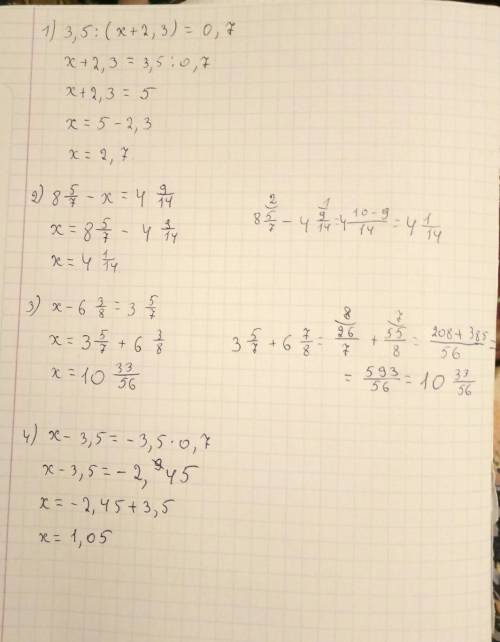 1) 3,5 : (x+2,3) = 0,7
x+2,3 = 3,5 : 0,7
x+2,3 = 5
x = 5 - 2,3
x = 2,7
2) 8 5/7 - x = 4 9/14
x = 8 5/7 - 4 9/14
x = 4 1/14
2 1
8 5/7 - 4 9/14 = 4 10-9/14 = 4 1/14
3) x - 6 3/8 = 3 5/7
x = 3 5/7 + 6 3/8
x = 10 33/56
8 7
3 5/7 + 6 7/8 = 26/7 + 55/8 = 208+385/56 =
= 593/56 = 10 33/56
4) x - 3,5 = -3,5 · 0,7
x - 3,5 = -2,45
x = -2,45 + 3,5
x = 1,05